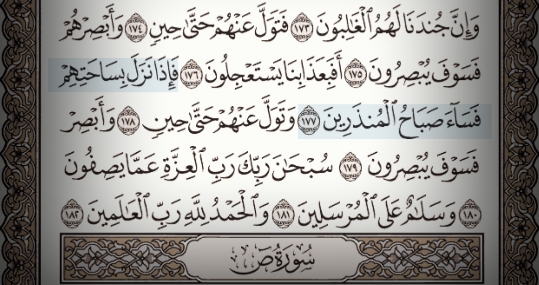 وَإِنَّ جُندَنَا لَهُمُ ٱلْغَـٰلِبُونَ ١٧٣ فَتَوَلَّ عَنْهُمْ حَتَّىٰ حِينٍ ١٧٤ وَأَبْصِرْهُمْ
فَسَوْفَ يُبْصِرُونَ ١٧٥ أَفَبِعَذَابِنَا يَسْتَعْجِلُونَ ١٧٦ فَإِذَا نَزَلَ بِسَاحَتِهِمْ
فَسَآءَ صَبَاحُ ٱلْمُنذَرِينَ ١٧٧ وَتَوَلَّ عَنْهُمْ حَتَّىٰ حِينٍ ١٧٨ وَأَبْصِرْ
فَسَوْفَ يُبْصِرُونَ ١٧٩ سُبْحَـٰنَ رَبِّكَ رَبِّ ٱلْعِزَّةِ عَمَّا يَصِفُونَ
١٨٠ وَسَلَـٰمٌ عَلَى ٱلْمُرْسَلِينَ ١٨١ وَٱلْحَمْدُ لِلَّهِ رَبِّ ٱلْعَـٰلَمِينَ ١٨٢
سُورَةُ صٓ